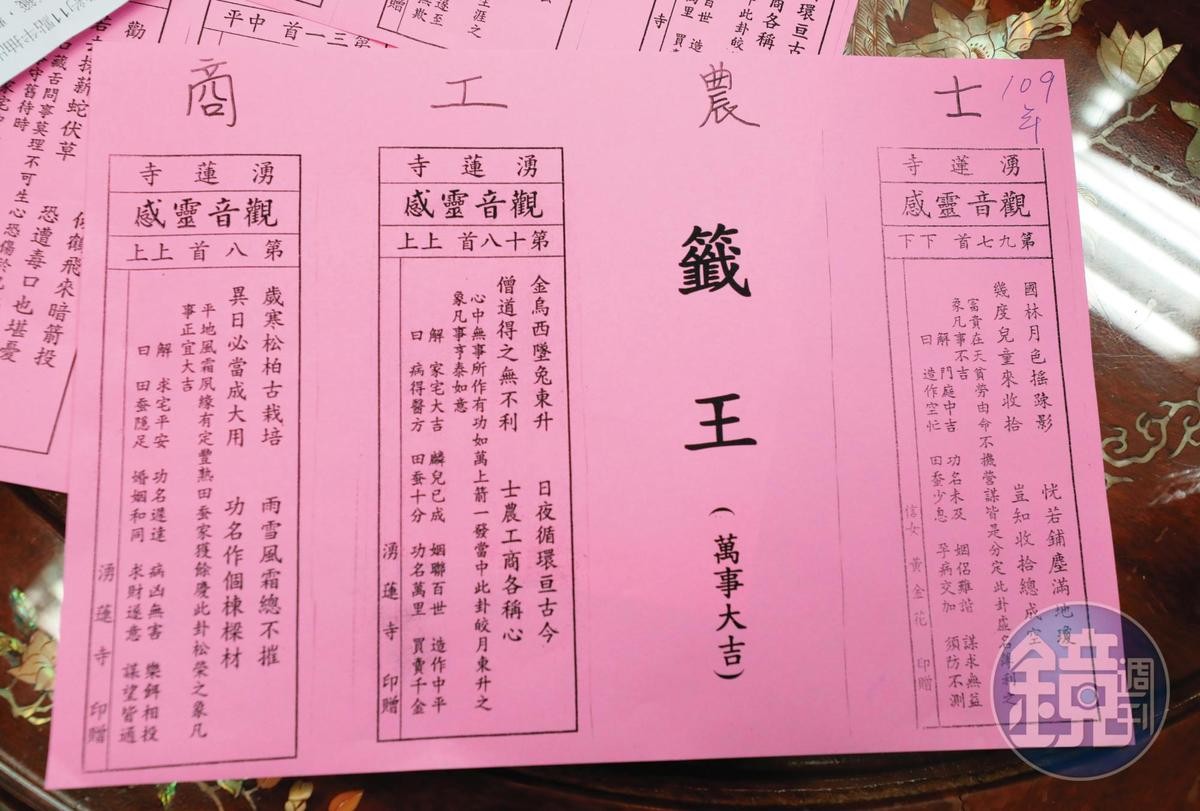 109年
士
農
工
商
湧蓮寺
觀音靈感
第九七首 下下
國林月色搖踈影 恍若鋪塵滿地瓊
幾度兒童來收拾 豈知收拾總成空
富貴在天貧勞由命不擾營謀皆是分定此卦虛名
象凡事不吉
解 門庭中吉 功名未及 姻侶難諧 謀求無益
曰 造作空忙 田蚕少息 孕病交加 須防不測
信女 黃金花 印贈
籤王(萬事大吉)
湧蓮寺
觀音靈感
第十八首 上上
金烏西墜兔東升 日夜循環亘古今
僧道得之無不利 士農工商各稱心
心中無事所作有功如萬上箭一發當中此卦皎月東升之
象凡事亨泰如意
解 家宅大吉 麟兒已成 姻聯百世 造作中平
曰 病得醫方 田蚕十分 功名萬里 買賣千金
湧蓮寺 印贈
湧蓮寺
觀音靈感
第八首 上上
歲寒松柏古栽培 雨雪風霜總不摧
異日必當成大用 功名作個棟樑材
平地風霜夙緣有定豐熟田蚕家獲餘慶此卦松榮之象凡
事正宜大吉
解 求宅平安 功名選達 病凶無害 樂餌相投
曰 田蚕隱足 婚姻和同 求財遂意 謀望皆通
湧蓮寺 印贈
第三一首 中平
勸
蛇伏草
恐遭毒口也堪憂
鶴飛來暗箭投
舌問事莫理不可生心恐傷於
守舊待時
生涯之
環亘古
商各稱
此卦皎
百世 造
萬里 買
鏡週刊